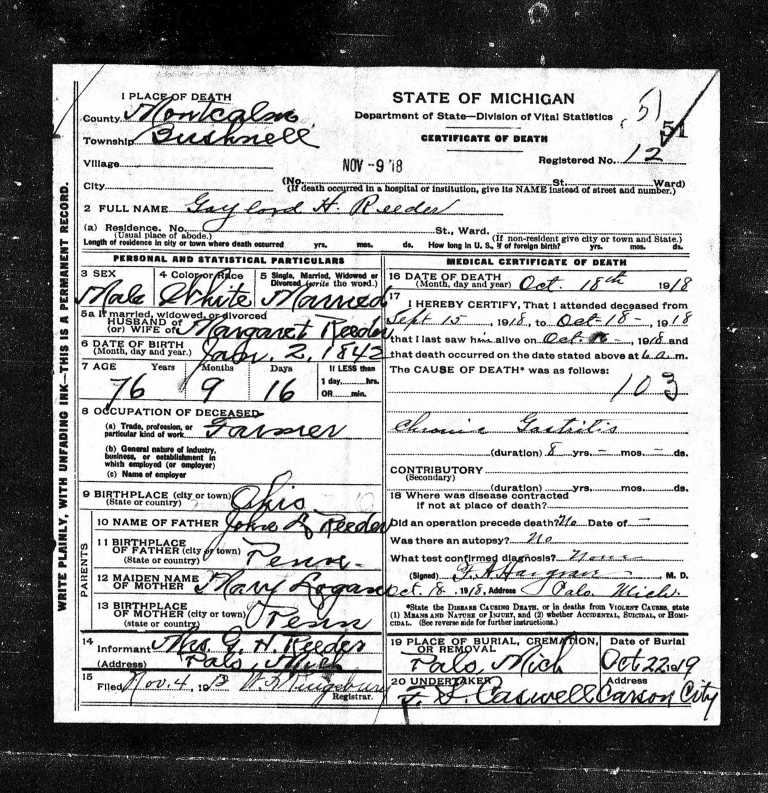 STATE OF MICHIGAN
Department of State—Division of Vital Statistics
CERTIFICATE OF DEATH
51
51
Registered No. 12
1 PLACE OF DEATH
County Montcalm
Township Bushnell
Village
NOV -9 '18
City (No. St. Ward)
(If death occurred in a hospital or institution, give its NAME instead of street and number.)
2 FULL NAME Gaylord H. Reeder
(a) Residence. No. St., Ward.
(Usual place of abode.) (If non-resident give city or town and State.)
Length of residence in city or town where death occurred yrs. mos. ds. How long in U. S., if of foreign birth? yrs. mos. ds.
WRITE PLAINLY, WITH UNFADING INK—THIS IS A PERMANENT RECORD.
PERSONAL AND STATISTICAL PARTICULARS
3 SEX 4 Color or Race 5 Single, Married, Widowed or
Divorced (write the word.)
Male White Married
5a If married, widowed, or divorced
HUSBAND of
(or) WIFE of Margaret Reeder
6 DATE OF BIRTH
(Month, day and year.) Jan. 2, 1842
7 AGE Years Months Days If LESS than
1 day, hrs.
OR min.
76 9 16
8 OCCUPATION OF DECEASED
(a) Trade, profession, or
particular kind of work Farmer
(b) General nature of industry,
business, or establishment in
which employed (or employer)
(c) Name of employer
9 BIRTHPLACE (city or town)
(State or country) Ohio
PARENTS
10 NAME OF FATHER John Reeder
11 BIRTHPLACE
OF FATHER (city or town)
(State or country) Penn.
12 MAIDEN NAME
OF MOTHER Mary Logan
13 BIRTHPLACE
OF MOTHER (city or town)
(state or country) Penn
14
Informant Mrs. G. H. Reeder
(Address) Palo, Mich
15
Filed Nov. 4, 19 Kingsbury
Registrar.
MEDICAL CERTIFICATE OF DEATH
16 DATE OF DEATH
(Month, day and year) Oct. 18th 1918
17
I HEREBY CERTIFY, That I attended deceased from
Sept 15, 1918, to Oct-18-, 1918
that I last saw him alive on Oct. -, 1918 and
that death occurred on the date stated above at 6 a.m.
The CAUSE OF DEATH* was as follows:
103
Chronic Gastritis
(duration) 8 yrs. — mos. — ds.
CONTRIBUTORY
(Secondary)
(duration) yrs. mos. ds.
18 Where was disease contracted
if not at place of death?
Did an operation precede death? No Date of —
Was there an autopsy? No
What test confirmed diagnosis? None
(Signed) M. D.
Oct. 18, 1918. Address Palo Mich.
*State the DISEASE CAUSING DEATH, or in deaths from VIOLENT CAUSES, state
(1) MEANS AND NATURE OF INJURY, and (2) whether ACCIDENTAL, SUICIDAL, OR HOMI-
CIDAL. (See reverse side for further instructions.)
19 PLACE OF BURIAL, CREMATION,
OR REMOVAL
Palo, Mich
Date of Burial
Oct 22 19
20 UNDERTAKER
F. S. Caswell
Address
Carson City